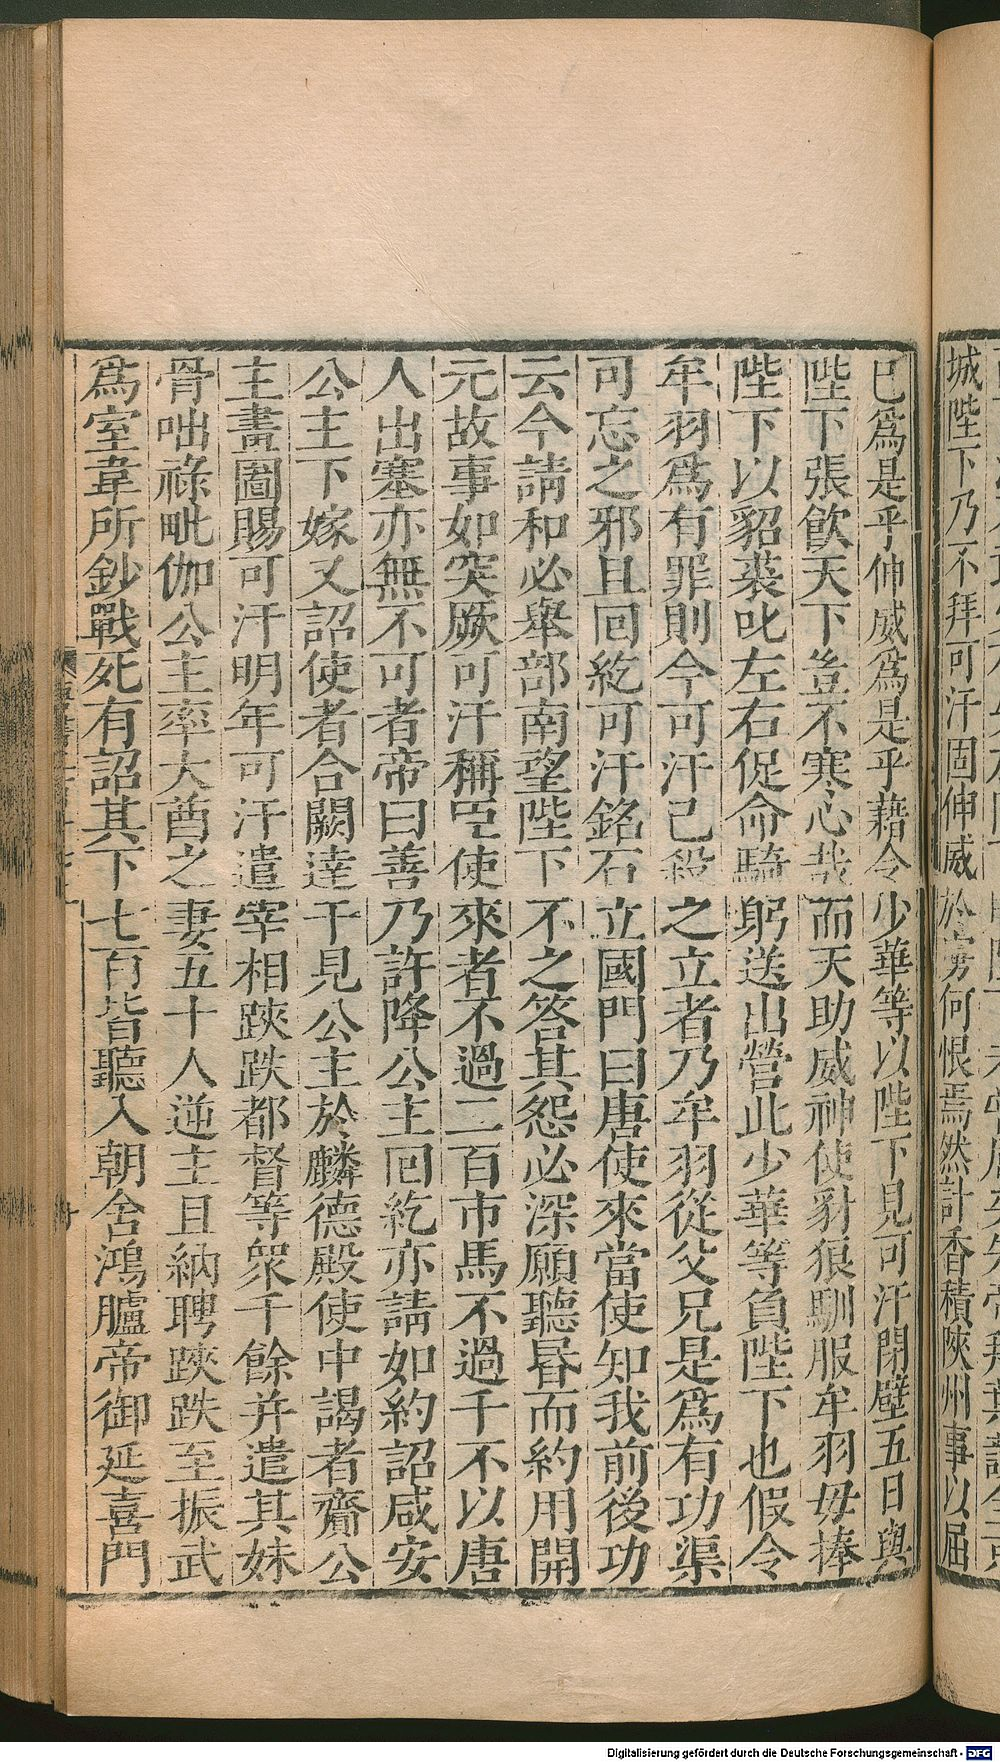 城陛下乃不拜可汗固伸威於虜何恨焉然計香積陝州事以屈
已爲是乎伸威爲是乎藉令少華等以陛下見可汗閉壁五日與
陛下張飲天下豈不寒心哉而天助威神使豺狼馴服牟羽毋捧
陛下以貂裘叱左右促命騎躬送出營此少華等負陛下也假令
牟羽爲有罪則今可汗己殺之立者乃牟羽從父兄是爲有功渠
可忘之邪且回紇可汗銘石立國門曰唐使來當使知我前後功
云今請和必舉部南望陛下不之答其怨必深願聽昬而約用開
元故事如突厥可汗稱臣使來者不過二百市馬不過千不以唐
人出塞亦無不可者帝曰善乃許降公主回紇亦請如約詔咸安
公主下嫁又詔使者合闕達干見公主於麟德殿使中謁者齎公
主畫圖賜可汗明年可汗遣宰相䟴跌都督等衆千餘并遣其妹
骨咄祿毗伽公主率大酋之妻五十人逆主且納聘䟴跌至振武
爲室韋所鈔戰死有詔其下七百皆聽入朝舍鴻臚帝御延喜門
Digitalisierung gefördert durch die Deutsche Forschungsgemeinschaft - DFG